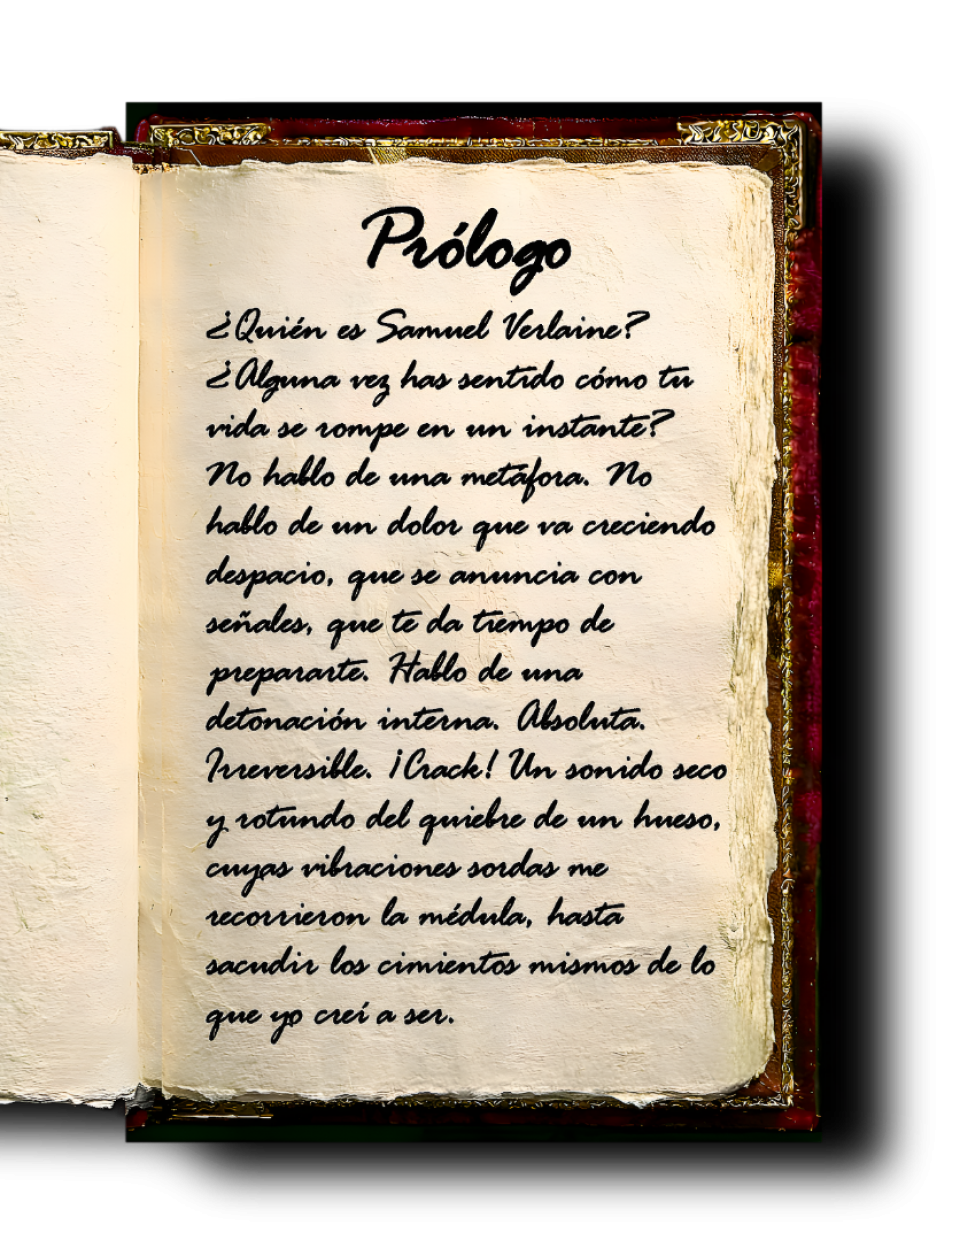 Prólogo
¿Quién es Samuel Verlaine?
¿Alguna vez has sentido cómo tu
vida se rompe en un instante?
No hablo de una metáfora. No
hablo de un dolor que va creciendo
despacio, que se anuncia con
señales, que te da tiempo de
prepararte. Hablo de una
detonación interna. Absoluta.
Irreversible. ¡Crack! Un sonido seco
y rotundo del quiebre de un hueso,
cuyas vibraciones sordas me
recorrieron la médula, hasta
sacudir los cimientos mismos de lo
que yo creí a ser.